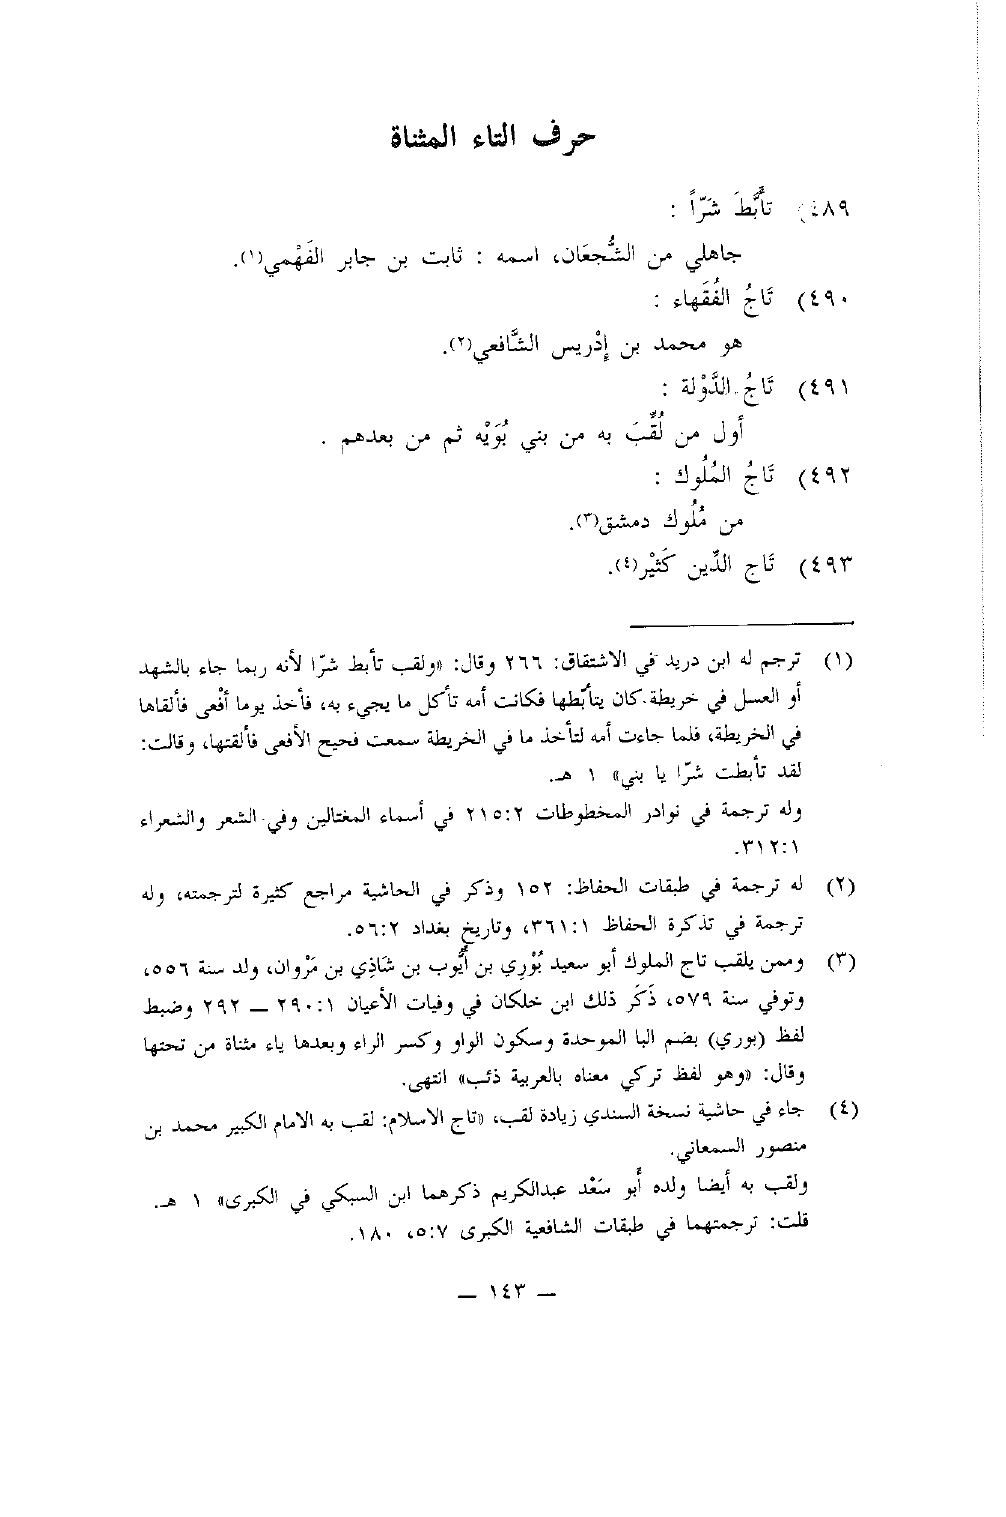 حرف التاء المثناة
٤٨٩) تأَبَّطَ شَرّاً :
جاهلي من الشُّجعَان، اسمه : ثابت بن جابر الفَهْمي(١).
٤٩٠) تَاجُ الفُقَهاء :
هو محمد بن إدْريس الشَّافعي(٢).
٤٩١) تَاجُ الدَّوْلة :
أول من لُقِّبَ به من بني بُوَيْه ثم من بعدهم .
٤٩٢) تَاجُ المُلُوك :
من مُلُوك دمشق(٣).
٤٩٣) تَاج الدِّين كَثيْر(٤).
(١) ترجم له ابن دريد في الاشتقاق: ٢٦٦ وقال: «ولقب تأبط شرّا لأنه ربما جاء بالشهد
أو العسل في خريطة كان يتأبّطها فكانت أمه تأكل ما يجيء به، فأخذ يوما أفْعى فألقاها
في الخريطة، فلما جاءت أمه لتأخذ ما في الخريطة سمعت فحيح الأفعى فألقتها، وقالت:
لقد تأبطت شرّا يا بني» ١ هـ.
وله ترجمة في نوادر المخطوطات ٢١٥:٢ في أسماء المغتالين وفي الشعر والشعراء
٣١٢:١.
(٢) له ترجمة في طبقات الحفاظ: ١٥٢ وذكر في الحاشية مراجع كثيرة لترجمته، وله
ترجمة في تذكرة الحفاظ ٣٦١:١، وتاريخ بغداد ٥٦:٢.
(٣) وممن يلقب تاج الملوك أبو سعيد بُوْري بن أيُّوب بن شَاذِي بن مَرْوان، ولد سنة ٥٥٦،
وتوفي سنة ٥٧٩، ذَكَر ذلك ابن خلكان في وفيات الأعيان ٢٩٠:١ — ٢٩٢ وضبط
لفظ (بوري) بضم البا الموحدة وسكون الواو وكسر الراء وبعدها ياء مثناة من تحتها
وقال: «وهو لفظ تركي معناه بالعربية ذئب» انتهى.
(٤) جاء في حاشية نسخة السندي زيادة لقب، «تاج الاسلام: لقب به الامام الكبير محمد بن
منصور السمعاني.
ولقب به أيضا ولده أبو سَعْد عبدالكريم ذكرهما ابن السبكي في الكبرى» ١ هـ.
قلت: ترجمتهما في طبقات الشافعية الكبرى ٥:٧، ١٨٠.
— ١٤٣ —